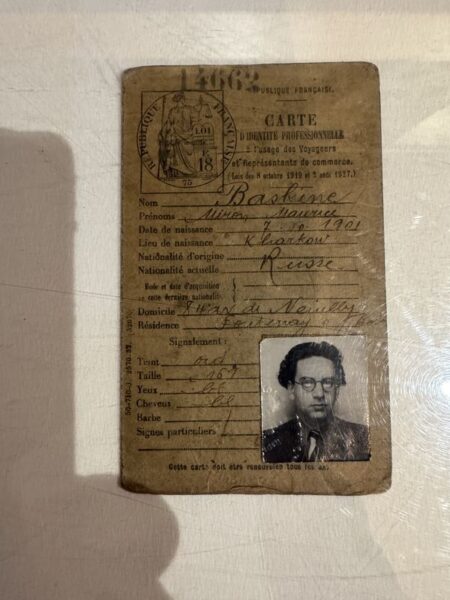 14662
RÉPUBLIQUE FRANÇAISE
RÉPUBLIQUE FRANÇAISE.
LOI
18
75
CARTE
D'IDENTITÉ PROFESSIONNELLE
à l'usage des Voyageurs
et Représentants de commerce.
(Lois des 8 octobre 1919 et 2 août 1927.)
Nom Baskine
Prénoms Miron Maurice
Date de naissance 7 1901
Lieu de naissance Kharkow
Nationalité d'origine
Nationalité actuelle Russe
Mode et date d'acquisition
de cette dernière nationalité
Domicile de Neuilly
Résidence Fontenay s/
Signalement :
Teint ord
Taille 167
Yeux
Cheveux
Barbe /
Signes particuliers
Cette carte doit être renouvelée tous les ans.